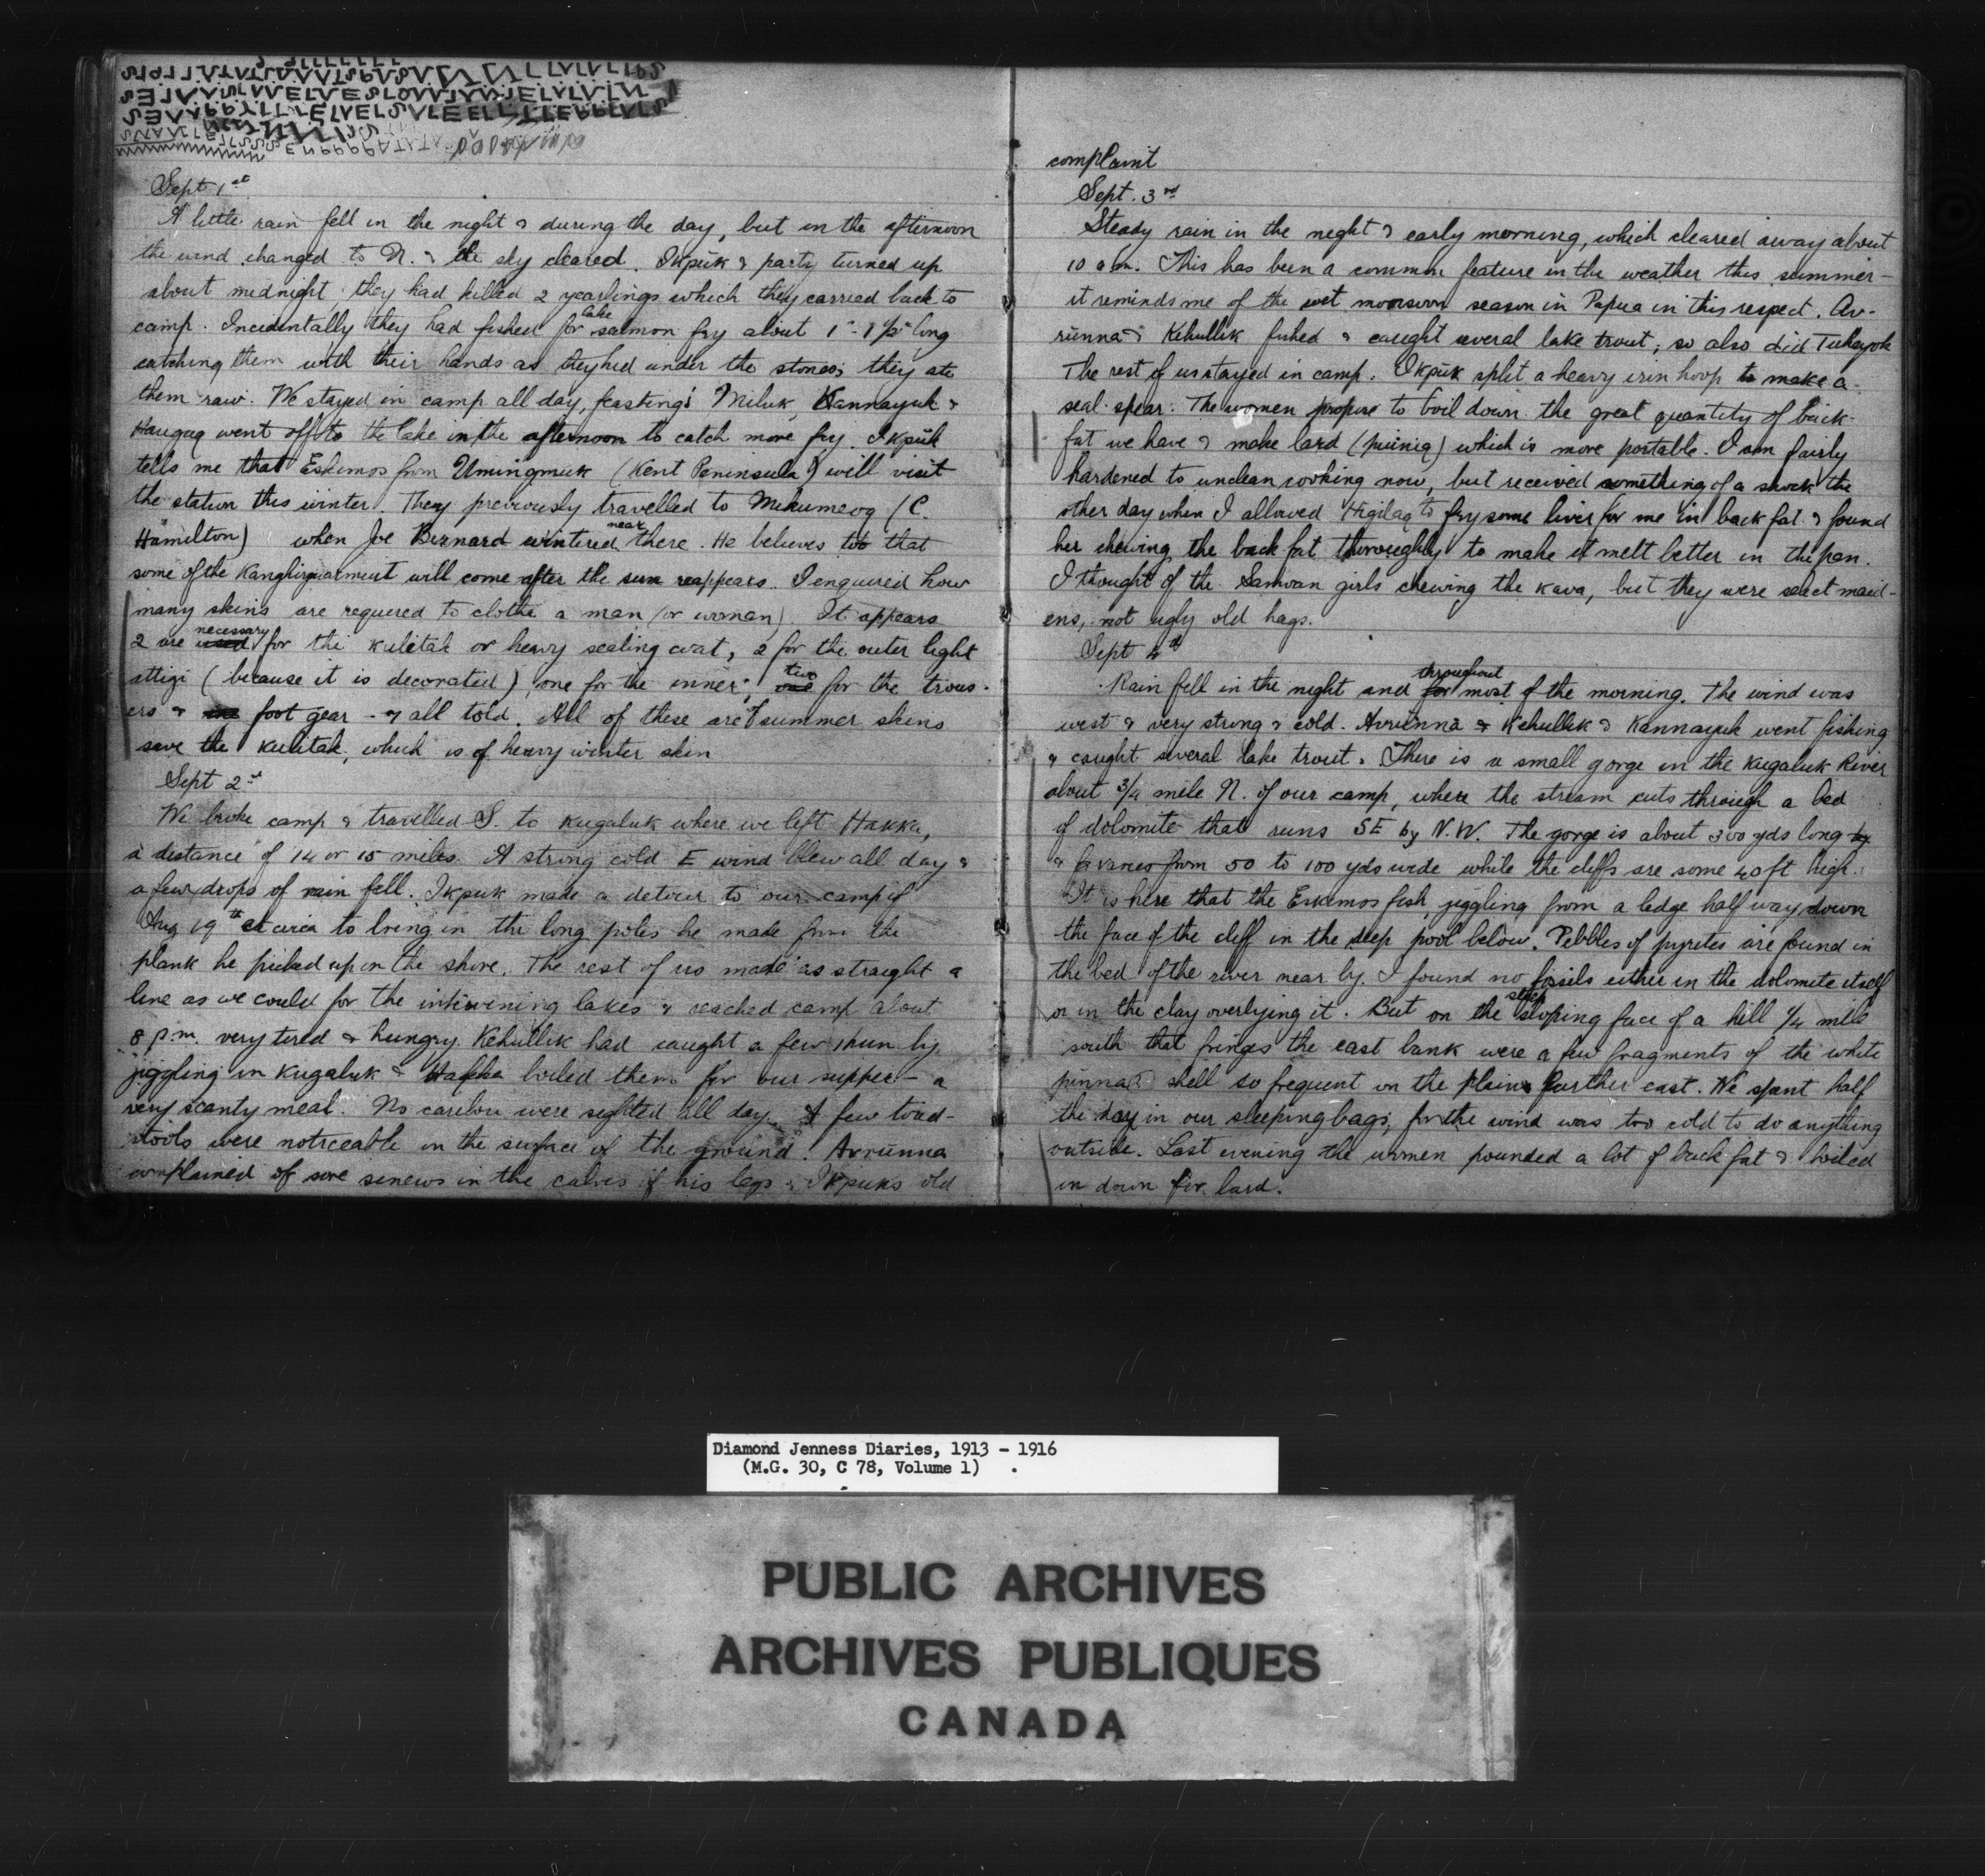 Sept 1st
A little rain fell in the night & during the day, but in the afternoon
the wind changed to N. & the sky cleared. Ikpuk & party turned up
about midnight they had killed 2 yearlings which they carried back to
camp. Incidentally they had fished for lake salmon fry about 1"-1½" long
catching them with their hands as they hid under the stones; they ate
them raw. We stayed in camp all day, feasting; Miluk, Kannayuk &
Haugaq went off to the lake in the afternoon to catch more fry. Ikpuk
tells me that Eskimos from Umingmuk (Kent Peninsula) will visit
the station this winter. They previously travelled to Mukumeoq (C.
Hamilton) when Joe Bernard wintered near there. He believes too that
some of the Kanghirjuarmiut will come after the sun reappears. I enquired how
many skins are required to clothe a man (or woman). It appears
2 are used necessary for the kulitak or heavy sealing coat, 2 for the outer light
attigi (because it is decorated), one for the inner, one two for the trous-
ers & foot gear - 7 all told. All of these are summer skins
save the kulitak, which is of heavy winter skin
Sept 2nd
We broke camp & travelled S. to Kugaluk where we left Hakka,
a distance of 14 or 15 miles. A strong cold E wind blew all day &
a few drops of rain fell. Ikpuk made a detour to our camp of
Aug 19th circa to bring in the long poles he made from the
plank he picked up on the shore. The rest of us made as straight a
line as we could for the intervening lakes & reached camp about
8 p.m. very tired & hungry. Kehullik had caught a few by
jiggling in Kugaluk & Hakka boiled them for our supper - a
very scanty meal. No caribou were sighted all day. A few toad-
stools were noticeable on the surface of the ground. Avrunna
complained of sore sinews in the calves of his legs: Ikpuks old
complaint
Sept. 3rd
Steady rain in the night & early morning, which cleared away about
10 a.m. This has been a common feature in the weather this summer -
it reminds me of the wet monsoon season in Papua in this respect. Av-
runna & Kehullik fished & caught several lake trout; so also did Tukayok
The rest of us stayed in camp. Ikpuk split a heavy iron hoop to make a
seal-spear. The women propose to boil down the great quantity of back-
fat we have & make lard (puiniq) which is more portable. I am fairly
hardened to unclean cooking now, but received something of a shock the
other day when I allowed Higilaq to fry some liver for me in back fat & found
her chewing the back fat thoroughly to make it melt better in the pan.
I thought of the Samoan girls chewing the kava, but they were select maid-
ens, not ugly old hags.
Sept 4th
Rain fell in the night and for throughout most of the morning. The wind was
west & very strong & cold. Avrunna & Kehullik & Kannayuk went fishing
& caught several lake trout. There is a small gorge in the Kugaluk River
about ¾ mile N. of our camp, where the stream cuts through a bed
of dolomite that runs SE by N.W. The gorge is about 300 yds long by
& varies from 50 to 100 yds wide while the cliffs are some 40 ft high.
It is here that the Eskimos fish, jiggling from a ledge half way down
the face of the cliff in the deep pool below. Pebbles of pyrites are found in
the bed of the river near by. I found no fossils either in the dolomite itself
or in the clay overlying it. But on the steep sloping face of a hill ¼ mile
south that fringes the east bank were a few fragments of the white
pinna(?) shell so frequent on the plains further east. We spent half
the day in our sleeping bags, for the wind was too cold to do anything
outside. Last evening the women pounded a lot of back fat & boiled
in down for lard.
Diamond Jenness Diaries, 1913 - 1916
(M.G. 30, C 78, Volume 1)
PUBLIC ARCHIVES
ARCHIVES PUBLIQUES
CANADA